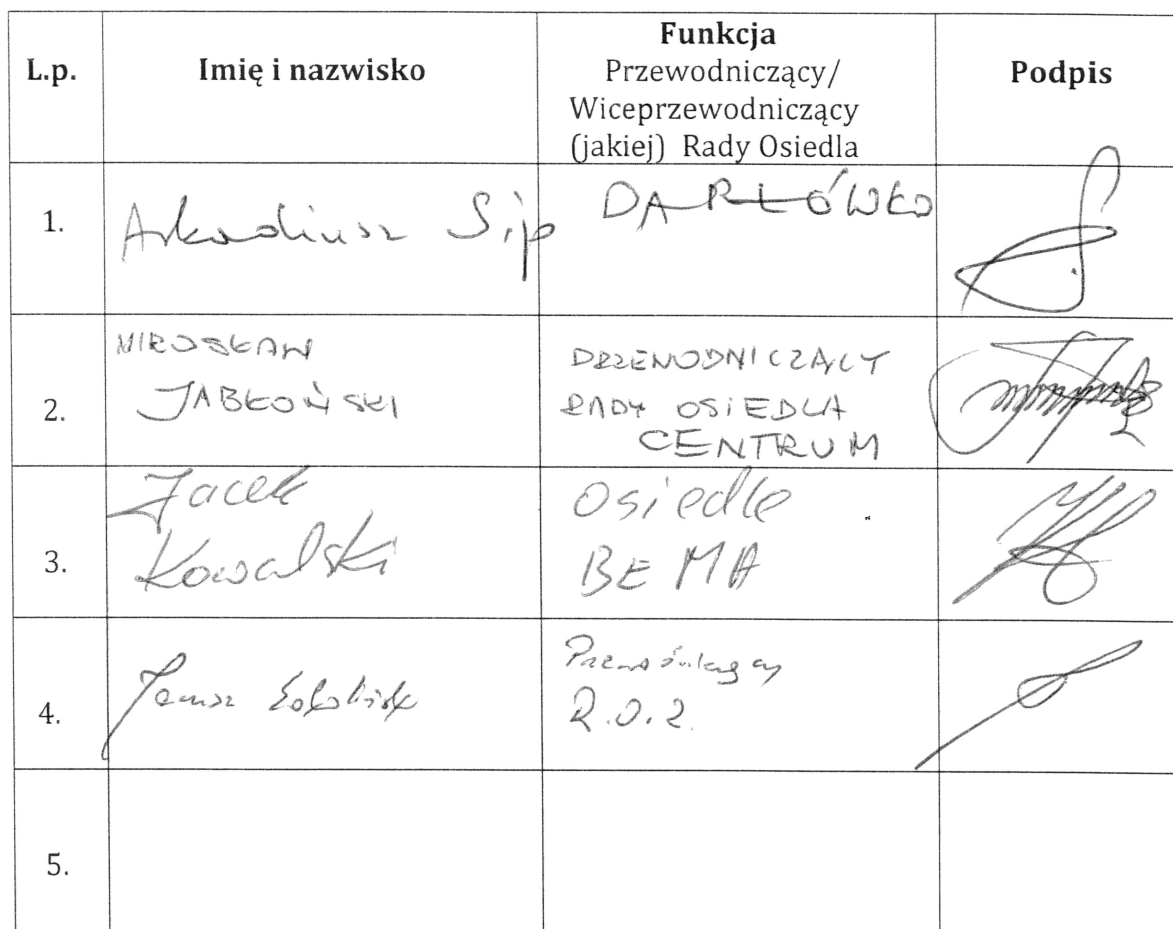 L.p. Imię i nazwisko Funkcja Podpis
Przewodniczący/
Wiceprzewodniczący
(jakiej) Rady Osiedla
1. Arkadiusz Sip DARŁÓWKO
2. MIROSŁAW JABŁOŃSKI
PRZEWODNICZĄCY
RADY OSIEDLA
CENTRUM
3. Jacek
Kowalski
Osiedle
BEMA
4. Janusz
R.O.Z.
5.